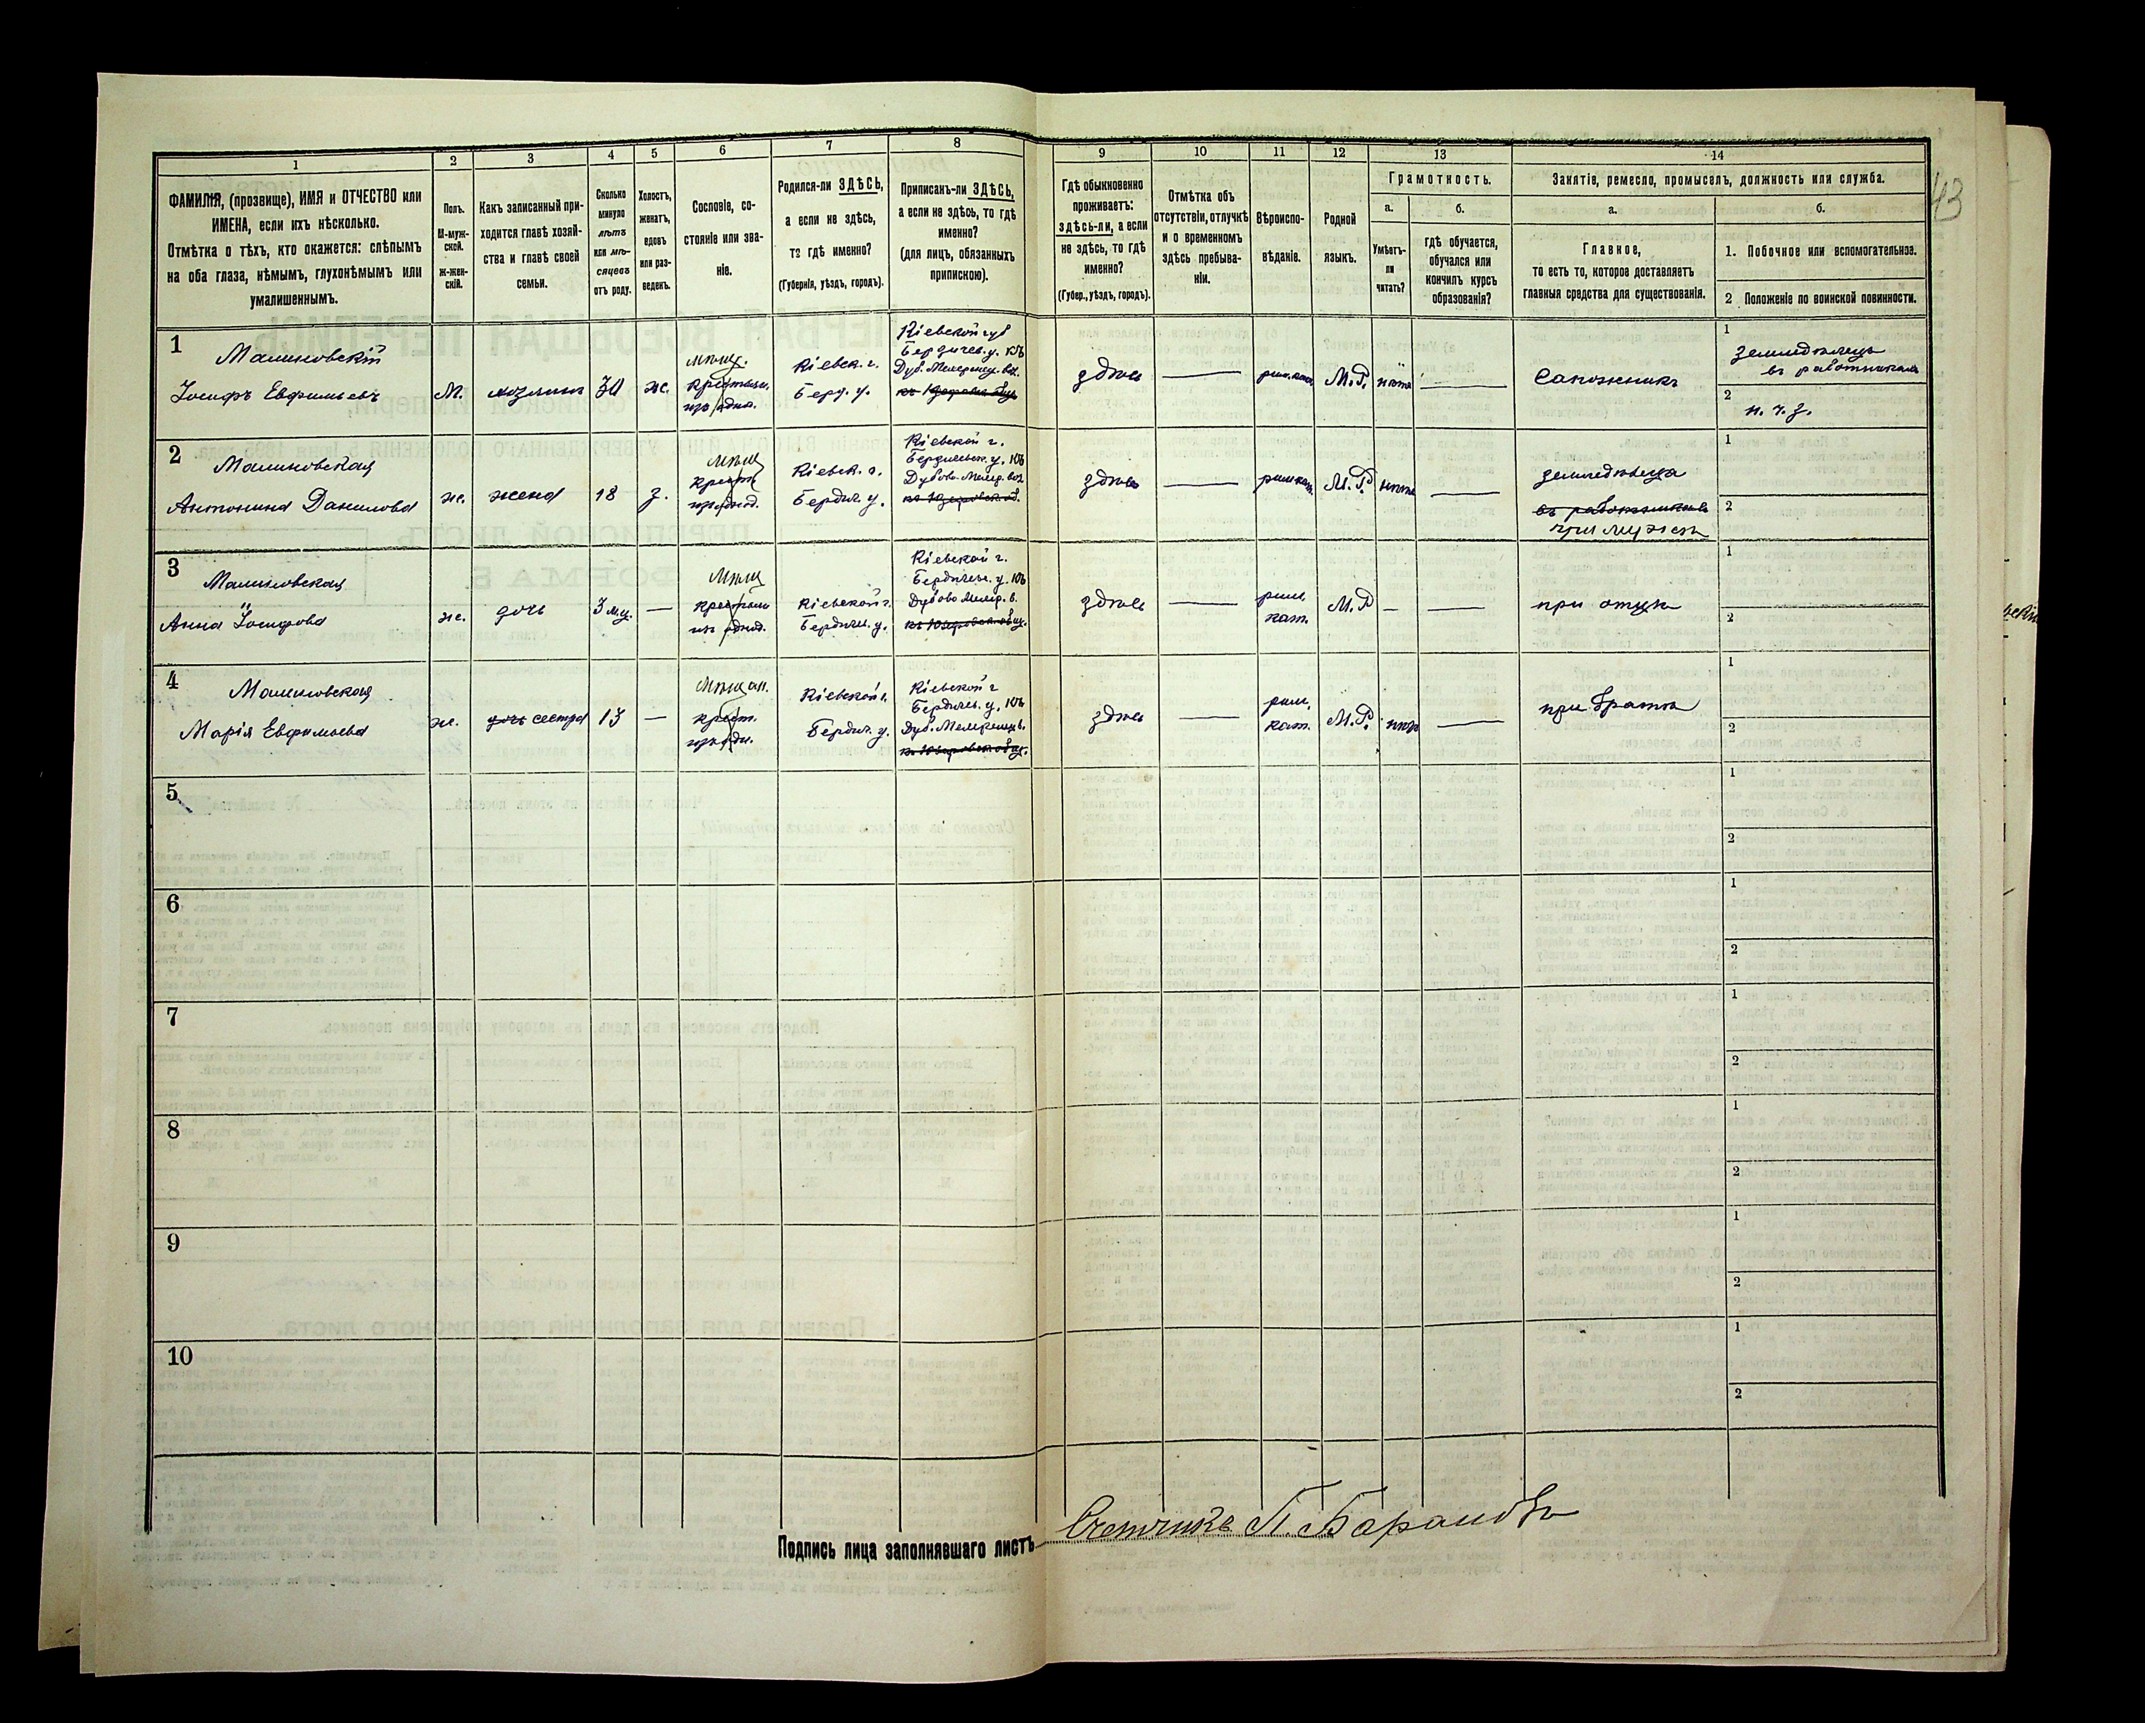 1
2
3
4
5
6
7
8
9
10
11
12
13
14
ФАМИЛІЯ, (прозвище), ИМЯ и ОТЧЕСТВО или
ИМЕНА, если ихъ нѣсколько.
Отмѣтка о тѣхъ, кто окажется: слѣпымъ
на оба глаза, нѣмымъ, глухонѣмымъ или
умалишеннымъ.
Полъ.
М-муж-
ской.
Ж-жен-
скій.
Какъ записанный при-
ходится главѣ хозяй-
ства и главѣ своей
семьи.
Сколько
минуло
лѣтъ
или мѣ-
сяцевъ
отъ роду.
Холостъ,
женатъ,
вдовъ
или раз-
веденъ.
Сословіе, со-
стояніе или зва-
ніе.
Родился-ли ЗДѢСЬ,
а если не здѣсь,
то гдѣ именно?
(Губернія, уѣздъ, городъ).
Приписанъ-ли ЗДѢСЬ,
а если не здѣсь, то гдѣ
именно?
(для лицъ, обязанныхъ
припискою).
Гдѣ обыкновенно
проживаетъ:
здѣсь-ли, а если
не здѣсь, то гдѣ
именно?
(Губер., уѣздъ, городъ).
Отмѣтка объ
отсутствіи, отлучкѣ
и о временномъ
здѣсь пребыва-
ніи.
Вѣроиспо-
вѣданіе.
Родной
языкъ.
Грамотность.
а.
Умѣетъ-
ли
читать?
б.
гдѣ обучается,
обучался или
кончилъ курсъ
образованія?
Занятіе, ремесло, промыселъ, должность или служба.
а.
Главное,
то есть то, которое доставляетъ
главныя средства для существованія.
б.
1. Побочное или вспомогательное.
2 Положеніе по воинской повинности.
43
1
Малиновскій
Іосифъ Евфимьевъ
М.
хозяинъ
30
же.
мѣщ.
крестьян.
изъ одно.
Кіевск. г.
Берд. у.
Кіевской губ
Бердичев. у. къ
здѣсь
М.Р.
нѣтъ
Сапожникъ
1
земледѣлецъ
въ работникахъ
2
н. ч. з.
2
Малиновская
Антонина Данилова
ж.
жена
18
з.
мѣщ
крест
Кіевск. г.
Бердич. у.
Кіевской г.
здѣсь
рим кат.
М.Р.
нѣтъ
земледѣлица
въ работникахъ
при мужѣ
1
2
3
Малиновская
Анна Іосифова
ж.
дочь
3 м.
—
мѣщ
Кіевской г.
Бердич. у.
Кіевской г.
здѣсь
рим
кат.
М.Р
—
при отцѣ
1
2
4
Малиновская
Марія Евфимьева
ж.
дочь сестра
13
—
мѣщан.
крест.
Кіевской г.
Бердич. у.
Кіевской г
здѣсь
рим.
кат.
М.Р.
при братѣ
1
2
5
1
2
6
1
2
7
1
2
8
1
2
9
1
2
10
1
2
Подпись лица заполнявшаго листъ
Счетчикъ П. Барановъ